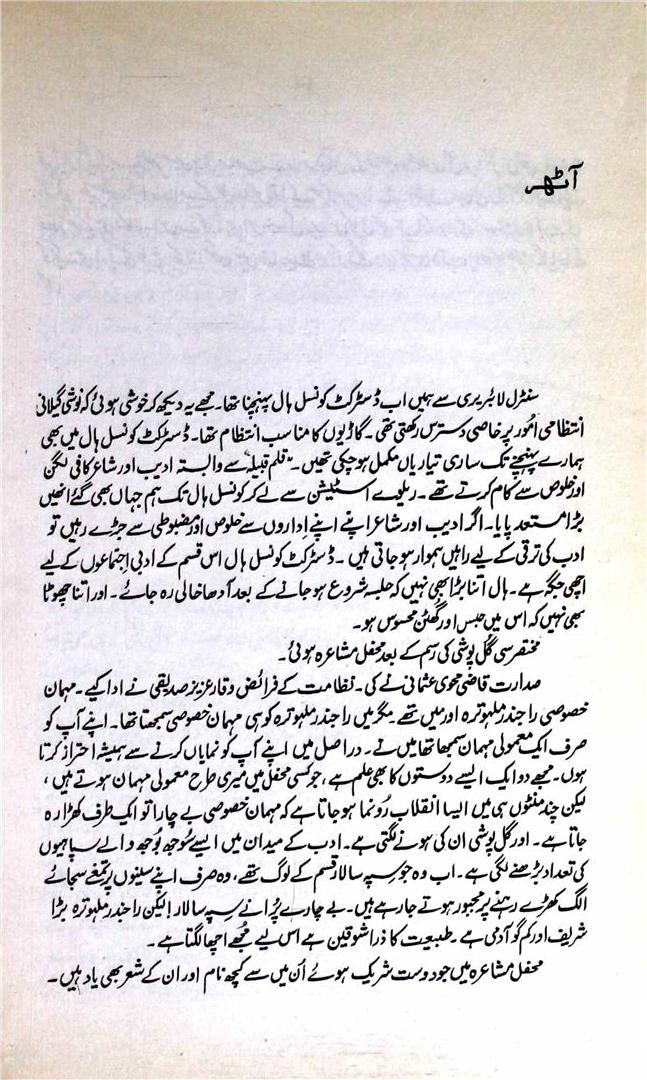 آٹھ
سنٹرل لائبریری سے ہمیں اب ڈسٹرکٹ کونسل ہال پہنچنا تھا۔ مجھے یہ دیکھ کر خوشی ہوئی کہ نوشی گیلانی
انتظامی امُور پر خاصی دسترس رکھتی تھی۔ گاڑیوں کا مناسب انتظام تھا۔ ڈسٹرکٹ کونسل ہال میں بھی
ہمارے پہنچنے تک ساری تیاریاں مکمل ہو چکی تھیں۔ "قلم قبیلہ" سے وابستہ ادیب اور شاعر کافی لگن
اور خلوص سے کام کرتے تھے۔ ریلوے اسٹیشن سے لے کر کونسل ہال تک ہم جہاں بھی گئے انھیں
بڑا مستعد پایا۔ اگر ادیب اور شاعر اپنے اپنے اِداروں سے خلوص اور مضبوطی سے جڑے رہیں تو
ادب کی ترقی کے لیے راہیں ہموار ہو جاتی ہیں۔ ڈسٹرکٹ کونسل ہال اس قسم کے ادبی اجتماعوں کے لیے
اچھی جگہ ہے۔ ہال اتنا بڑا بھی نہیں کہ جلسہ شروع ہو جانے کے بعد آدھا خالی رہ جائے۔ اور اتنا چھوٹا
بھی نہیں کہ اس میں حبس اور گھٹن محسوس ہو۔
مختصر سی گُل پوشی کی رسم کے بعد محفل مشاعرہ ہوئی۔
صدارت قاضی محوی عثمانی نے کی۔ نظامت کے فرائض وقار عزیز صدیقی نے ادا کیے۔ مہمان
خصوصی راجندر ملہوترہ اور میں تھے مگر میں راجندر ملہوترہ کو ہی مہمان خصوصی سمجھتا تھا۔ اپنے آپ کو
صرف ایک معمولی مہمان سمجھا تھا میں نے۔ دراصل میں اپنے آپ کو نمایاں کرنے سے ہمیشہ احتراز کرتا
ہوں۔ مجھے دو ایک ایسے دوستوں کا بھی علم ہے، جو کسی محفل میں میری طرح معمولی مہمان ہوتے ہیں،
لیکن چند منٹوں ہی میں ایسا انقلاب رُونما ہو جاتا ہے کہ مہمان خصوصی بے چارا تو ایک طرف کھڑا رہ
جاتا ہے۔ اور گل پوشی ان کی ہونے لگتی ہے۔ ادب کے میدان میں ایسے سُوجھ بُوجھ والے سپاہیوں
کی تعداد بڑھنے لگی ہے۔ اب وہ جو سپہ سالار قسم کے لوگ تھے، وہ صرف اپنے سینوں پر تمغے سجائے
الگ کھڑے رہنے پر مجبور ہوتے جا رہے ہیں۔ بے چارے پُرانے سپہ سالار! لیکن راجندر ملہوترہ بڑا
شریف اور کم گو آدمی ہے۔ طبیعت کا ذرا شوقین ہے اس لیے مُجھے اچھا لگتا ہے۔
محفل مشاعرہ میں جو دوست شریک ہوئے اُن میں سے کچھ نام اور ان کے شعر بھی یاد ہیں۔